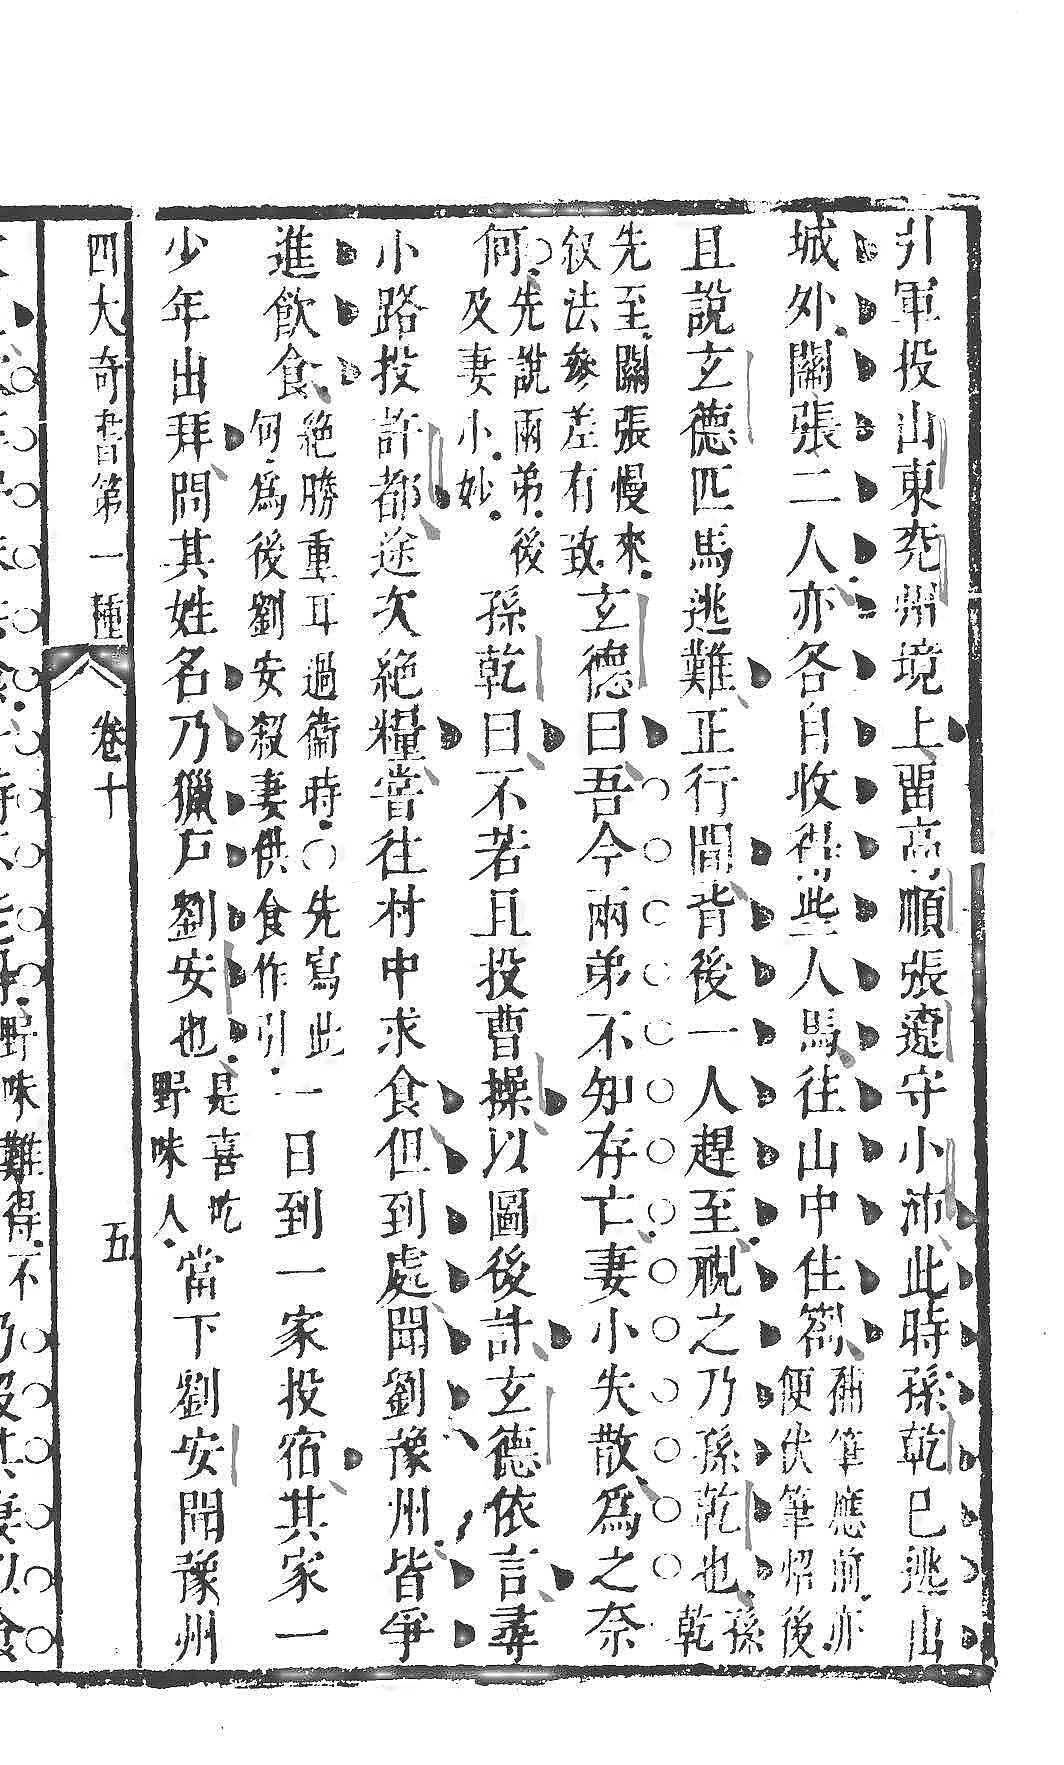 引軍投山東兖州境上畱高順張遼守小沛此時孫乾已逃出
城外關張二人亦各自收得些人馬往山中住劄補筆應前亦便伏筆炤後
且說玄德匹馬逃難正行間背後一人趕至視之乃孫乾也孫乾
先至關張慢來叙法參差有致玄德曰吾今兩弟不知存亡妻小失散為之奈
何○先說兩弟後及妻小妙孫乾曰不若且投曹操以圖後計玄德依言尋
小路投許都途次絕糧嘗往村中求食但到處聞劉豫州皆爭
進飲食絕勝重耳過衞時○先寫此句為後劉安殺妻供食作引一日到一家投宿其家一
少年出拜問其姓名乃獵戶劉安也是喜吃野味人當下劉安聞豫州
四大奇書第一種 卷十 五
野味難得不